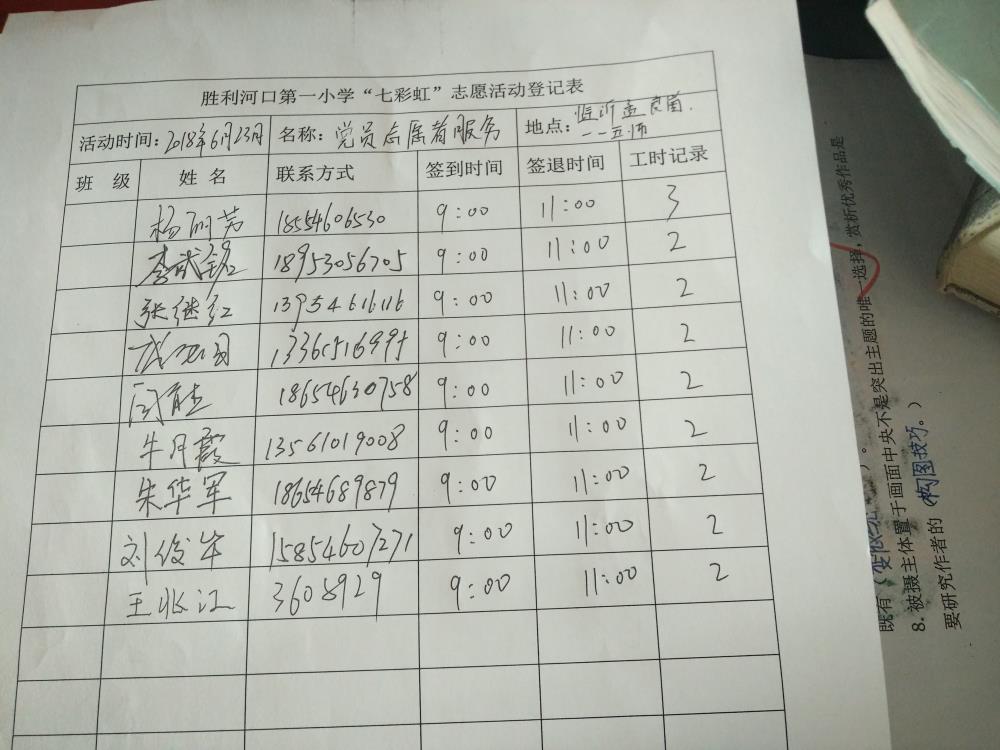 胜利河口第一小学“七彩虹”志愿活动登记表
活动时间：2018年6月23月 名称：党员志愿者服务 地点：临沂孟良崮.
班 级 姓 名 联系方式 签到时间 签退时间 工时记录
杨丽芳 18554606530 9:00 11:00 3
李武铭 18953056705 9:00 11:00 2
张继红 13954616116 9:00 11:00 2
9:00 11:00 2
闫胜 18654630758 9:00 11:00 2
牛月霞 13561019008 9:00 11:00 2
朱华军 18654689879 9:00 11:00 2
刘俊华 15854607271 9:00 11:00 2
王兆江 3608929 9:00 11:00 2
一选择，赏析优秀作品是
既有（
8. 被摄主体置于画面中央不是突出主题的唯
要研究作者的（构图技巧。）